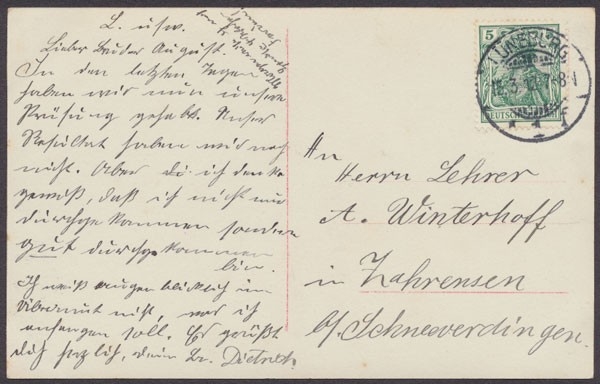 L. usw.
Lieber Bruder August.
In den letzten Tagen
haben wir nun unsere
Prüfung gehabt. Unser
Resultat haben wir noch
nicht. Aber ich denke
gewiß, daß ich nicht nur
durchgekommen sondern
gut durchgekommen
bin.
Ich weiß augenblicklich im
Übermut nicht, was ich
anfangen soll. Es grüßt
dich herzlich, dein Br. Dietrich.
5
DEUTSCHES
LÜNEBURG
An
Herrn Lehrer
A. Winterhoff
in Zahrensen
b/ Schneverdingen.